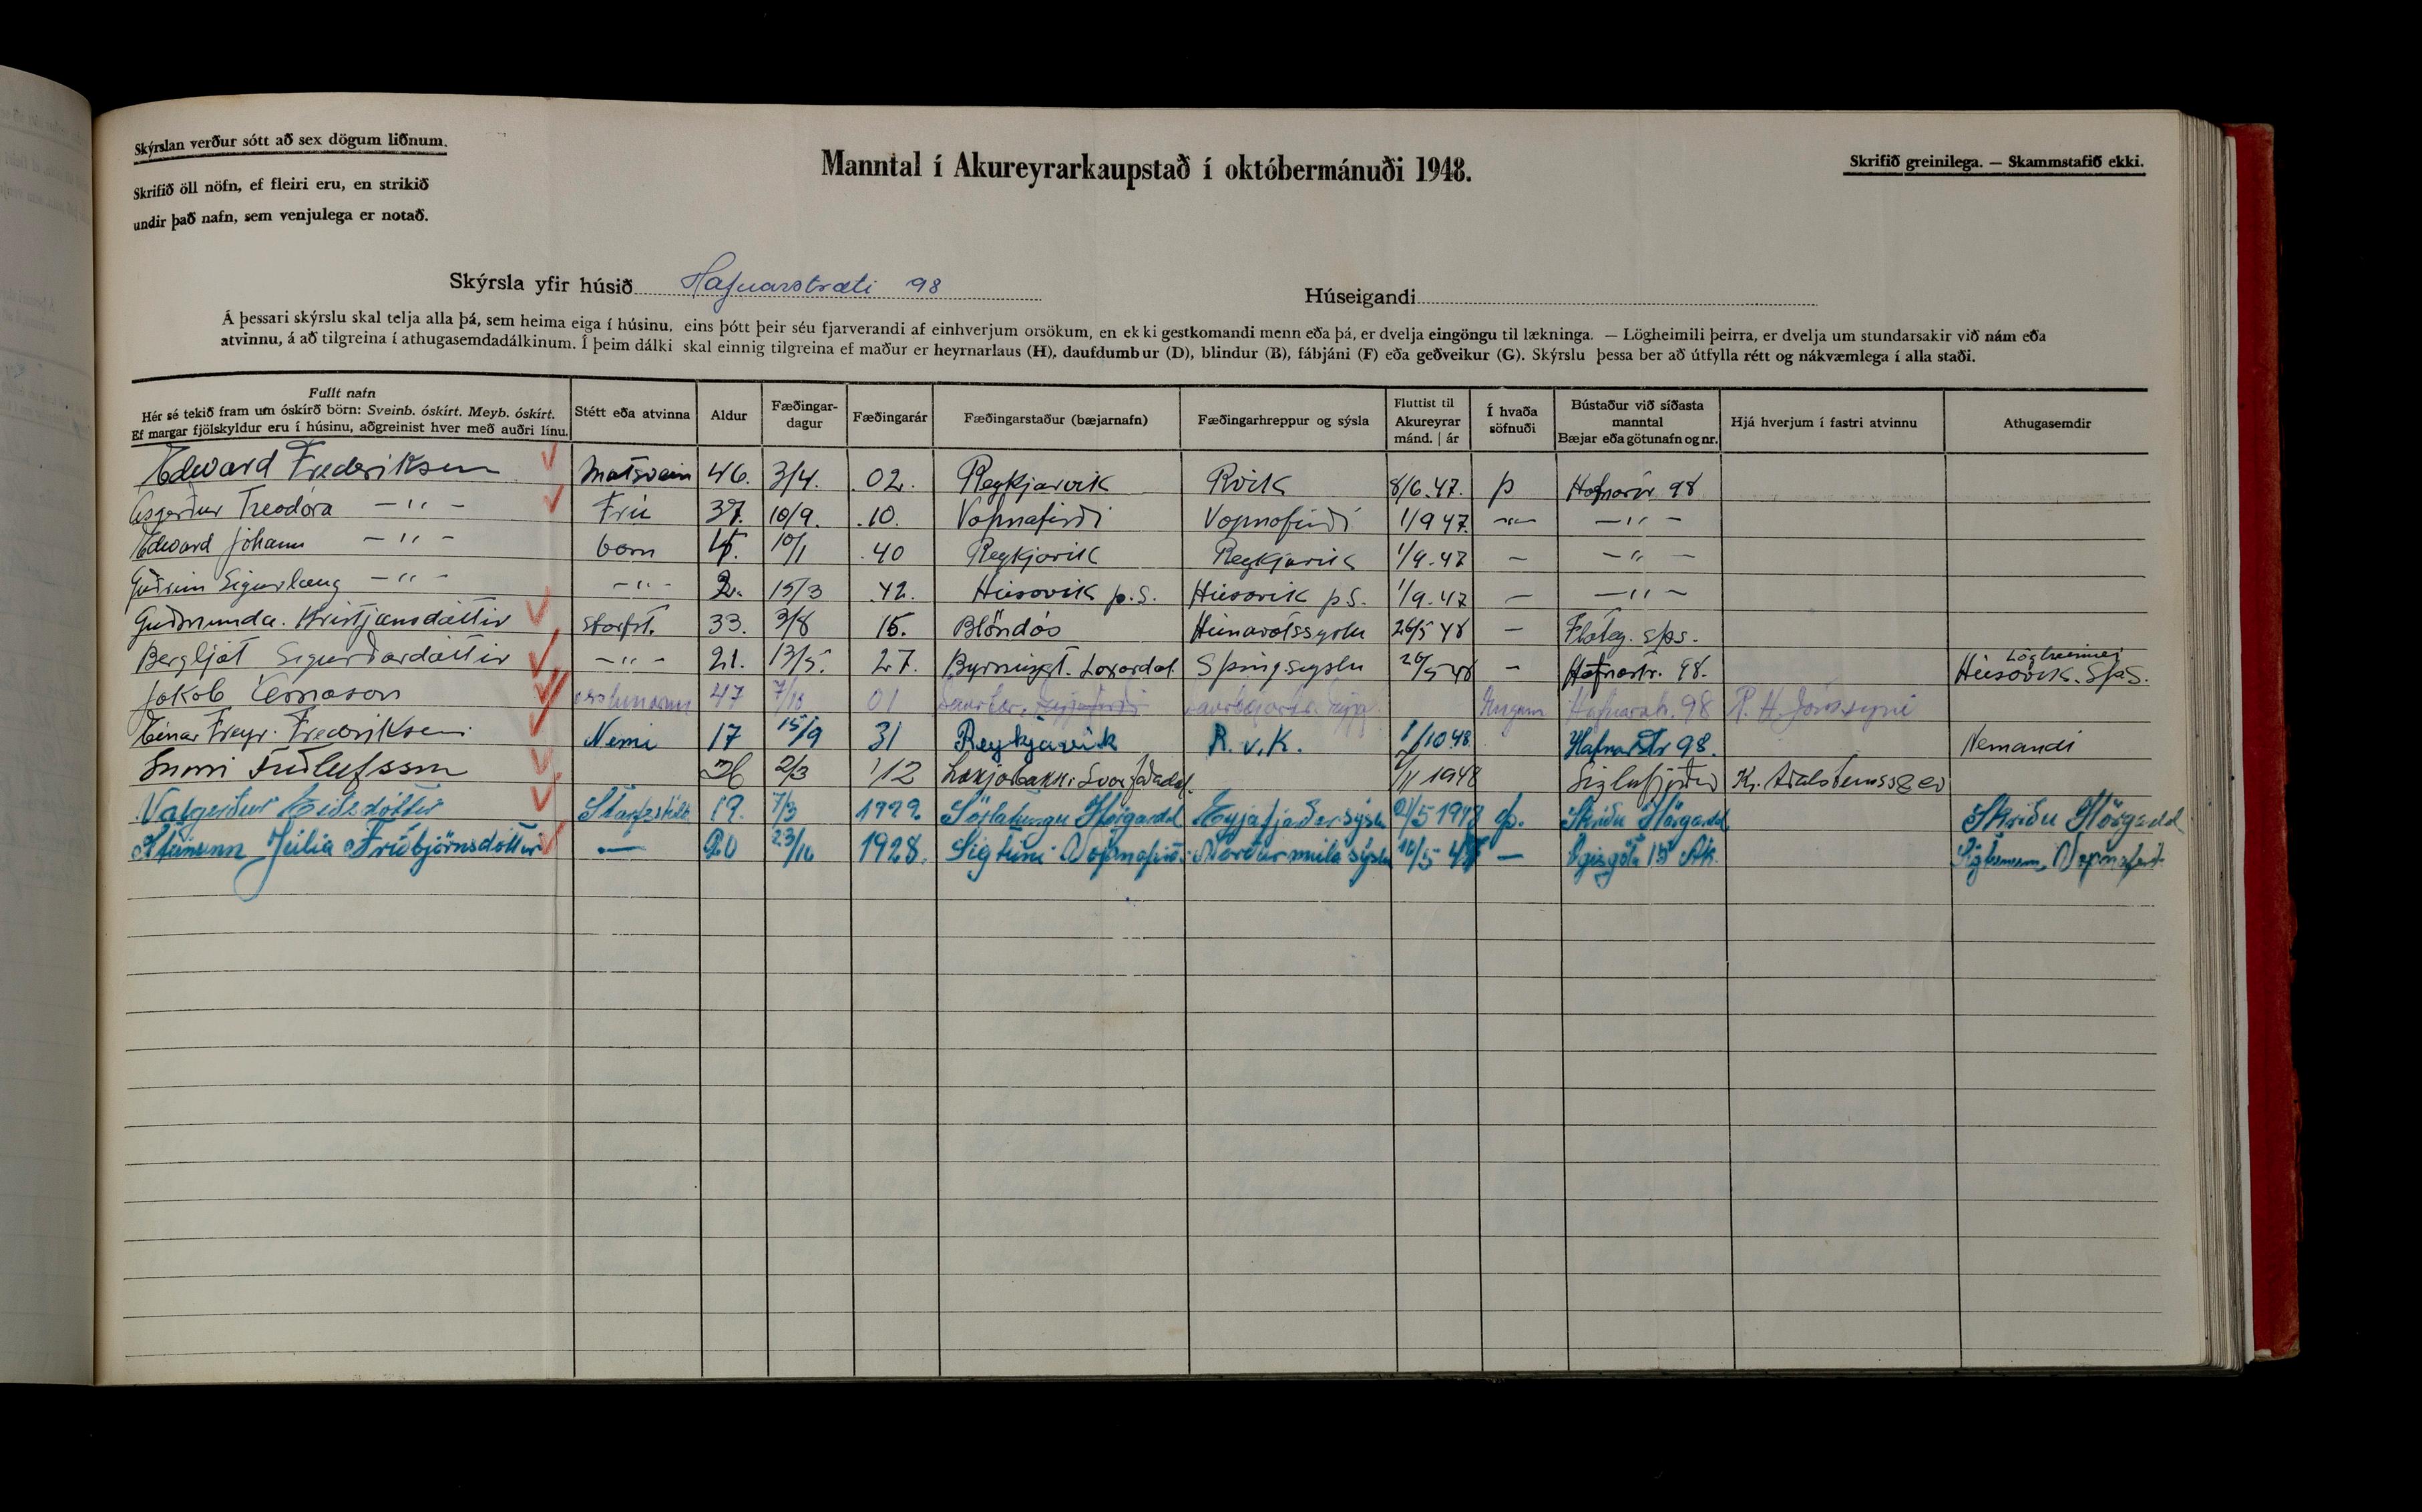 Skýrslan verður sótt að sex dögum liðnum.
Skrifið öll nöfn, ef fleiri eru, en strikið
undir það nafn, sem venjulega er notað.
Manntal í Akureyrarkaupstað í októbermánuði 1948.
Skrifið greinilega. — Skammstafið ekki.
Skýrsla yfir húsið Hafnarstræti 98
Húseigandi
Á þessari skýrslu skal telja alla þá, sem heima eiga í húsinu, eins þótt þeir séu fjarverandi af einhverjum orsökum, en ekki gestkomandi menn eða þá, er dvelja eingöngu til lækninga. — Lögheimili þeirra, er dvelja um stundarsakir við nám eða
atvinnu, á að tilgreina í athugasemdadálkinum. Í þeim dálki skal einnig tilgreina ef maður er heyrnarlaus (H), daufdumbur (D), blindur (B), fábjáni (F) eða geðveikur (G). Skýrslu þessa ber að útfylla rétt og nákvæmlega í alla staði.
Fullt nafn Hér sé tekið fram um óskírð börn: Sveinb. óskírt. Meyb. óskírt. Ef margar fjölskyldur eru í húsinu, aðgreinist hver með auðri línu. Stétt eða atvinna Aldur Fæðingar-dagur Fæðingarár Fæðingarstaður (bæjarnafn) Fæðingarhreppur og sýsla Fluttist til Akureyrar mánd. | ár Í hvaða söfnuði Bústaður við síðasta manntal Bæjar eða götunafn og nr. Hjá hverjum í fastri atvinnu Athugasemdir
Edward Frederiksen Matsvein 46. 3/4. 02. Reykjavik Rvik 8/6.47. þ Hafnarstr 98
Ásgerður Treodóra —"— Frú 37. 10/9. .10. Vopnafirði Vopnafirði 1/9 47. —"— —"—
Edward Jóhann —"— barn 10/1 .40 Reykjavik Reykjavik 1/9.47 — —"—
Guðrún Sigurlaug —"— —"— 2. 15/3 .42. Húsavik þ.s. Húsavik þ.s. 1/9.47 — —"—
Guðmunda. Kristjánsdóttir starfst. 33. 3/8 15. Blöndós Húnavatssyslu 26/5 48 — Flatey. sþs.
Bergljót Sigurðardóttir —"— 21. 13/5. 27. Laxardal. S þingseyslu 26/5 48 — Hafnastr. 98. Lögheimei Húsavik. SþS.
Jakob Árnason 47 7/10 01 Hafnarstr. 98 R. H. Jónssyni
Einar Freyr. Frederiksen Nemi 17 15/9 31 Reykjavik R.v.K. 1/10 48. Hafnarstr 98. Nemandi
Friðlefsson 2/3 '12 Svarfaðadal. 1/11 1948 Siglufjörður Kr. Aðalsteinssyni
Valgerður Eiðsdóttir Starfsstúlk 19. 7/3 1929. Sörlatungu Hörgardal Eyjafjaðersýslu 21/5 1948 þ. Skriðu Hörgardal Skriðu Hörgardal
Steinunn Júlía Friðbjörnsdóttir — 20 23/10 1928. Sigtúni Vopnafirð. Norðurmúlasýslu 10/5 48 — Ægisgötu 15 Ak. Sigtúnum, Vopnafird.